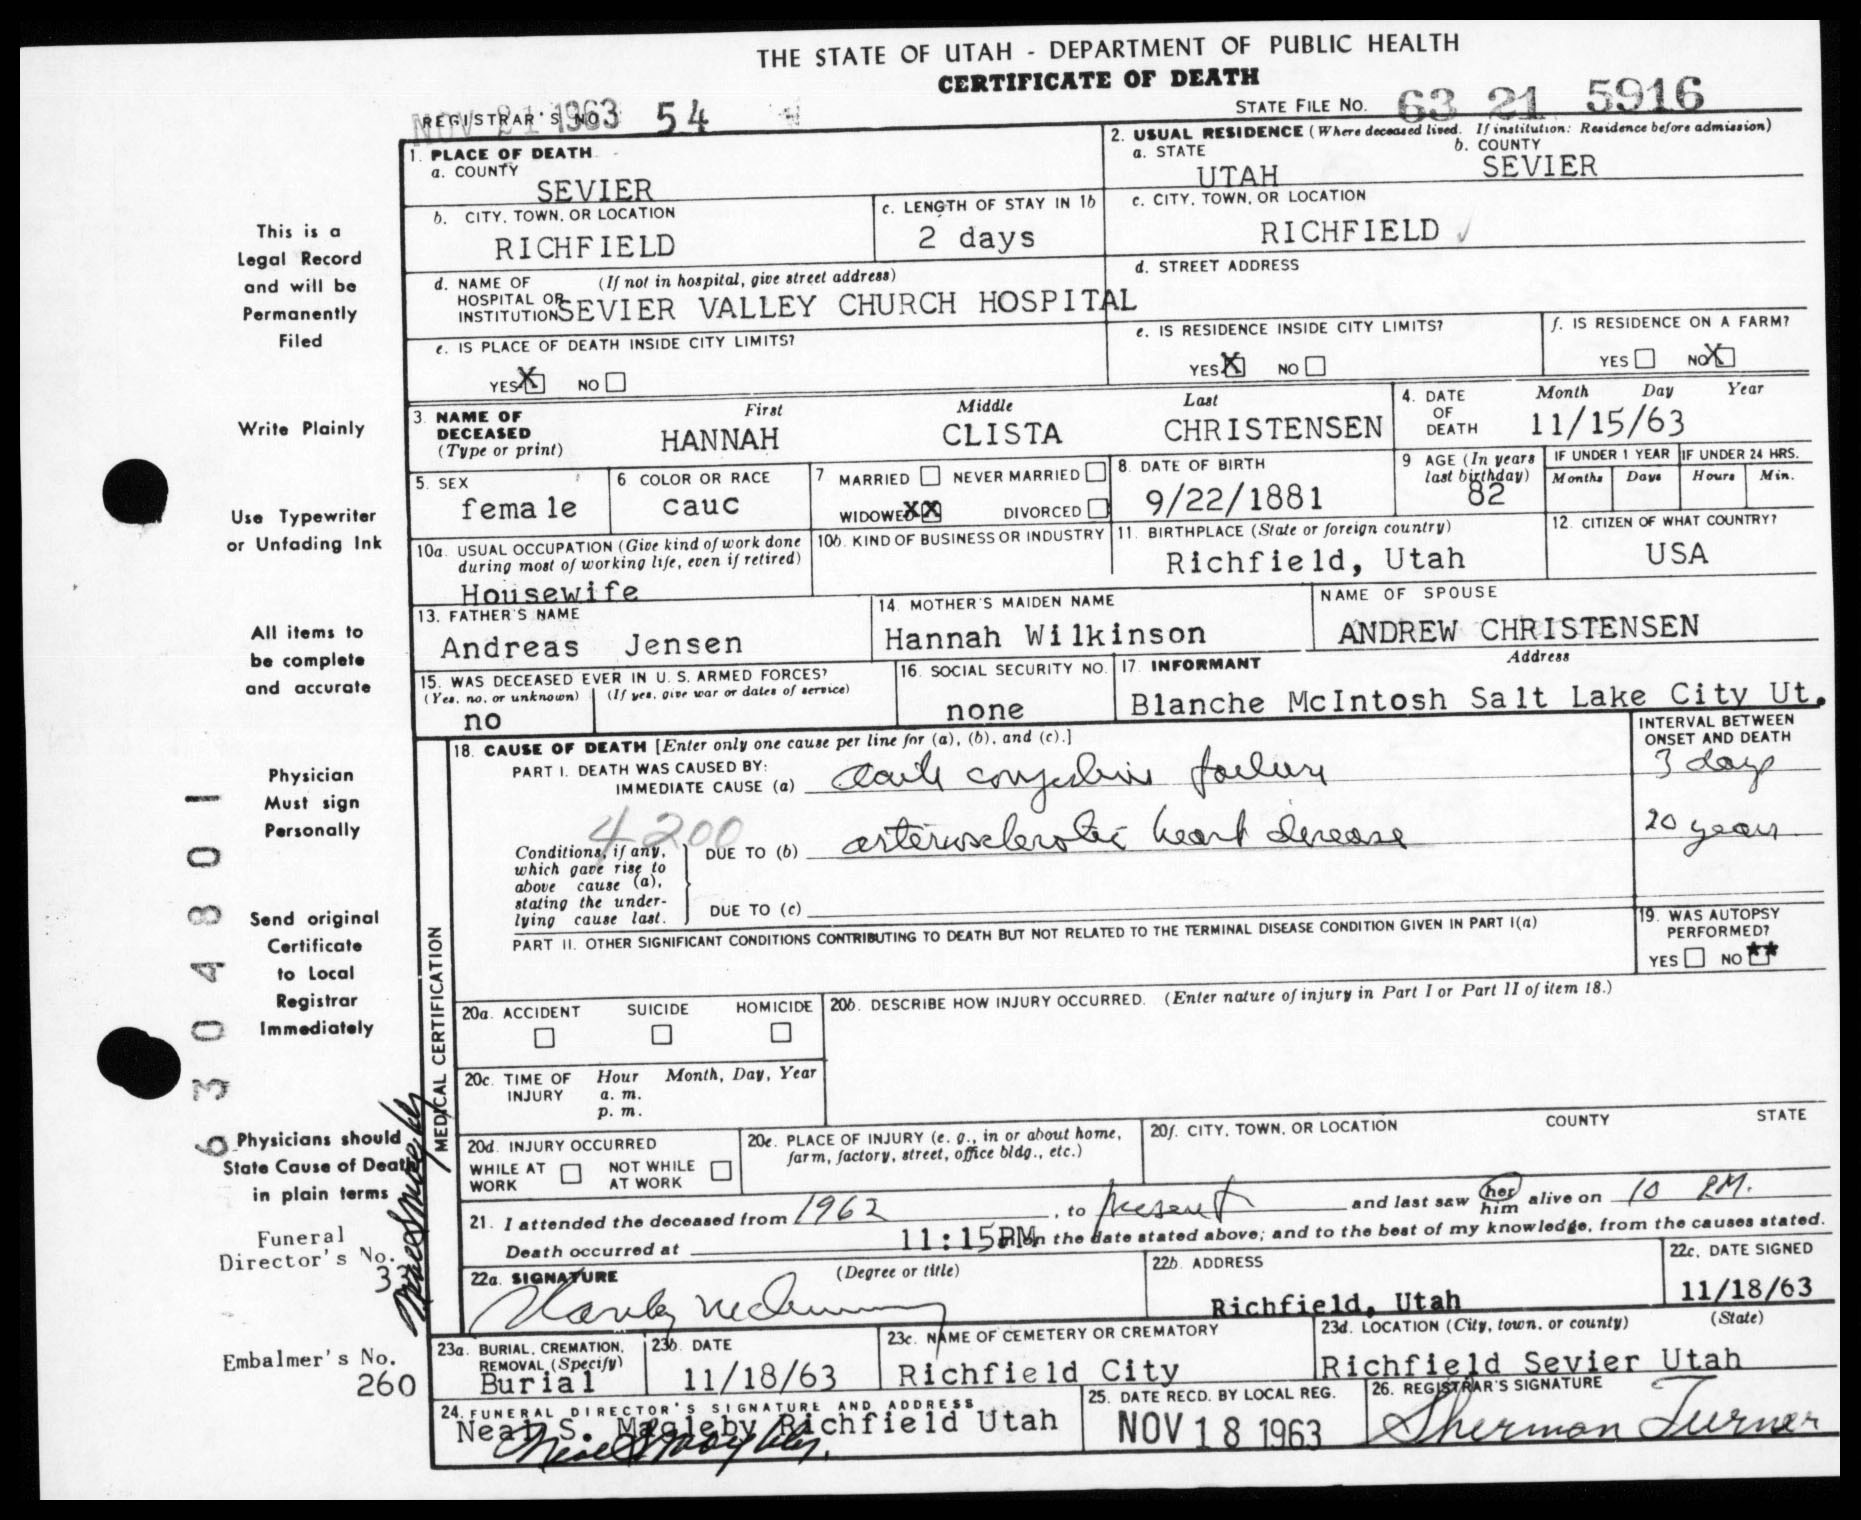 THE STATE OF UTAH - DEPARTMENT OF PUBLIC HEALTH
CERTIFICATE OF DEATH
STATE FILE NO. 63 21 5916
REGISTRAR'S NO. 54
NOV 21 1963
1. PLACE OF DEATH
a. COUNTY
SEVIER
2. USUAL RESIDENCE (Where deceased lived. If institution: Residence before admission)
a. STATE
UTAH
b. COUNTY
SEVIER
b. CITY, TOWN, OR LOCATION
RICHFIELD
c. LENGTH OF STAY IN 1b
2 days
c. CITY, TOWN, OR LOCATION
RICHFIELD
d. NAME OF (If not in hospital, give street address)
HOSPITAL OR
INSTITUTION SEVIER VALLEY CHURCH HOSPITAL
d. STREET ADDRESS
e. IS PLACE OF DEATH INSIDE CITY LIMITS?
YES X NO
e. IS RESIDENCE INSIDE CITY LIMITS?
YES X NO
f. IS RESIDENCE ON A FARM?
YES NO X
3. NAME OF
DECEASED
(Type or print)
First Middle Last
HANNAH CLISTA CHRISTENSEN
4. DATE
OF
DEATH
Month Day Year
11/15/63
5. SEX
female
6 COLOR OR RACE
cauc
7 MARRIED NEVER MARRIED
WIDOWED XX DIVORCED
8. DATE OF BIRTH
9/22/1881
9 AGE (In years
last birthday)
82
IF UNDER 1 YEAR
Months Days
IF UNDER 24 HRS.
Hours Min.
10a. USUAL OCCUPATION (Give kind of work done
during most of working life, even if retired)
Housewife
10b. KIND OF BUSINESS OR INDUSTRY
11. BIRTHPLACE (State or foreign country)
Richfield, Utah
12. CITIZEN OF WHAT COUNTRY?
USA
13. FATHER'S NAME
Andreas Jensen
14. MOTHER'S MAIDEN NAME
Hannah Wilkinson
NAME OF SPOUSE
ANDREW CHRISTENSEN
15. WAS DECEASED EVER IN U. S. ARMED FORCES?
(Yes, no, or unknown) (If yes, give war or dates of service)
no
16. SOCIAL SECURITY NO.
none
17. INFORMANT Address
Blanche McIntosh Salt Lake City Ut.
MEDICAL CERTIFICATION
18. CAUSE OF DEATH [Enter only one cause per line for (a), (b), and (c).]
INTERVAL BETWEEN
ONSET AND DEATH
PART I. DEATH WAS CAUSED BY:
IMMEDIATE CAUSE (a) acute congestive failure 3 days
4200
Conditions, if any,
which gave rise to
above cause (a),
stating the under-
lying cause last.
DUE TO (b) arteriosclerotic heart disease 20 years
DUE TO (c)
PART II. OTHER SIGNIFICANT CONDITIONS CONTRIBUTING TO DEATH BUT NOT RELATED TO THE TERMINAL DISEASE CONDITION GIVEN IN PART I(a)
19. WAS AUTOPSY
PERFORMED?
YES NO **
20a. ACCIDENT SUICIDE HOMICIDE
20b. DESCRIBE HOW INJURY OCCURRED. (Enter nature of injury in Part I or Part II of item 18.)
20c. TIME OF
INJURY
Hour Month, Day, Year
a. m.
p. m.
20d. INJURY OCCURRED
WHILE AT
WORK
NOT WHILE
AT WORK
20e. PLACE OF INJURY (e. g., in or about home,
farm, factory, street, office bldg., etc.)
20f. CITY, TOWN, OR LOCATION COUNTY STATE
21. I attended the deceased from 1962, to present and last saw her him alive on 10 P.M.
Death occurred at 11:15PM on the date stated above; and to the best of my knowledge, from the causes stated.
22a. SIGNATURE (Degree or title)
22b. ADDRESS
Richfield, Utah
22c. DATE SIGNED
11/18/63
23a. BURIAL, CREMATION,
REMOVAL (Specify)
Burial
23b. DATE
11/18/63
23c. NAME OF CEMETERY OR CREMATORY
Richfield City
23d. LOCATION (City, town, or county) (State)
Richfield Sevier Utah
24. FUNERAL DIRECTOR'S SIGNATURE AND ADDRESS
Neal S. Magleby Richfield Utah
Neal S Magleby.
25. DATE RECD. BY LOCAL REG.
NOV 18 1963
26. REGISTRAR'S SIGNATURE
Sherman Turner
This is a
Legal Record
and will be
Permanently
Filed
Write Plainly
Use Typewriter
or Unfading Ink
All items to
be complete
and accurate
Physician
Must sign
Personally
Send original
Certificate
to Local
Registrar
Immediately
Physicians should
State Cause of Death
in plain terms
Funeral
Director's No.
Neal S Magleby
Embalmer's No.
260
6304801